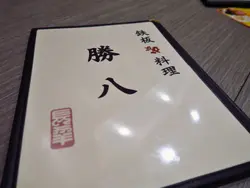 鉄板料理
勝八